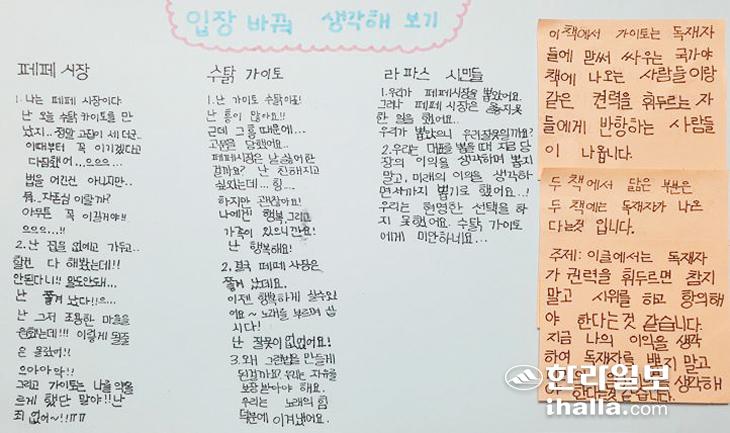 입장 바꿔 생각해 보기
페페 시장
1. 나는 페페 시장이다
난 오늘 수탉 가이토를 만
났지.. 정말 고집이 세더군..
이때부터 꼭 이기겠다고
다짐했어...으으으...
법을 어긴건 아니지만..
뭐..자존심 이랄까?
아무튼 꼭 이길거야!!
으으으...!!
2. 난 집을 없애고 가두고..
할껀 다 해봤는데!!
안된다니!! 말도안돼...
난 쫓겨 났다!!으...
난 그저 조용한 마을을
원했는데!!! 이렇게 될줄
은 몰랐어!!
으아아악!!
그리고 가이토는 나를 약올
르게 했단 말야!!난
죄 없어~!!ㅠㅠ
수탉 가이토
1. 난 가이토 수탉이죠!
난 흥이 많아요!!
근데 그 흥 때문에...
고문을 당했어요..
페페시장은 날 싫어한
걸까요? 난 친해지고
싶었는데... 힝...
하지만 괜찮아요!
나에겐 행복,그리고
가족이 있으니깐요!
난 행복해요!
2. 결국 페페 시장은
쫓겨 났데요.
이젠 행복하게 살수있
어요~ 노래를 부르며 삽
시다!
난 잘못이 없었어요!
3. 왜 그런법을 만들게
된걸까요? 우리는 자유를
보장 받아야 해요.
우리는 노래의 힘
덕분에 이겨냈어요.
라 파스 시민들
1. 우리가 페페시장을 뽑았어요.
그러나 페페 시장은 옳지못
한 일을 했어요..
우리가 뽑았으니 우리잘못일까요?
2. 우리는 대표를 뽑을 때 지금 당
장의 이익을 생각하며 뽑지
말고, 미래의 이익을 생각하
면서까지 뽑기로 했어요..!
우리는 현명한 선택을 하
지 못했어요. 수탉 가이토
에게 미안하네요...
이 책에서 가이토는 독재자
들에 맞써 싸우는 국가야
책에 나오는 사람들이랑
같은 권력을 휘두르는 자
들에게 반항하는 사람들
이 나옵니다.
두 책에서 닮은 부분은
두 책에는 독재자가 나온
다는것 입니다.
주제: 이글에서는 독재자
가 권력을 휘두르면 참지
말고 시위를 하고 항의해
야 한다는것 같습니다.
지금 나의 이익을 생각
하여 독재자를 뽑지 말고
생각해
야 한다는것 같습니다.
한라일보
ihalla.com